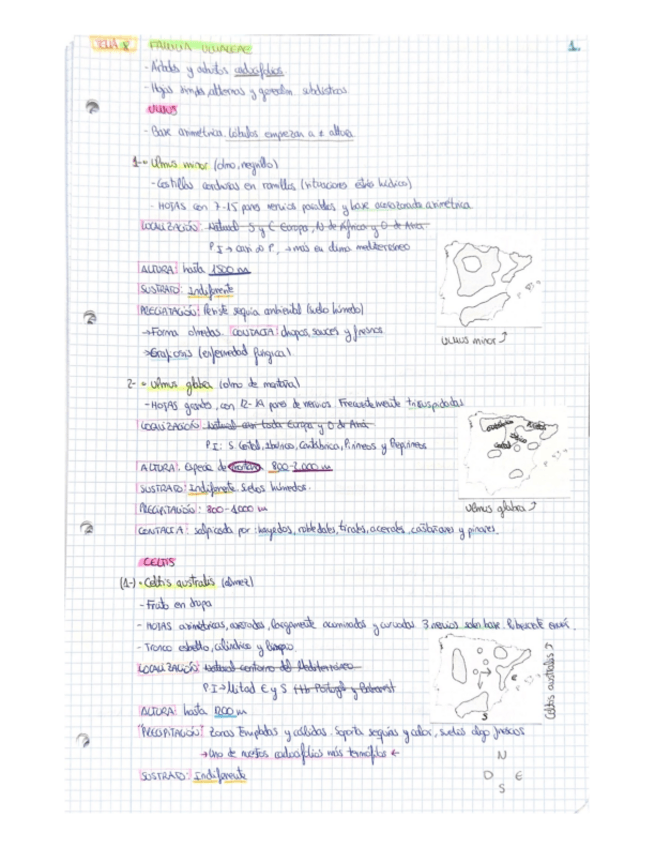 TEMA 8 FAMILIA ULMACEAE 1.
- Árboles y arbustos caducifolios
- Hojas simples, alternas y generalm subdísticas
ULMUS
- Base asimétrica. Lóbulos empiezan a ≠ altura
1-• Ulmus minor (olmo, negrillo)
- Costillas corchosas en ramillas (situaciones estrés hídrico)
- HOJAS con 7-15 pares nervios posibles y base acorazonada asimétrica
LOCALIZACIÓN: Natural S y C Europa, N de África y O de Asia
P I → casi ∞ P, → más en clima mediterráneo
ALTURA: hasta 1500 m
SUSTRATO: Indiferente
PRECIPITACIÓN: Resiste sequía ambiental (suelo húmedo)
→ Forma olmedas. CONTACTA: chopos, sauces y fresnos
→ Grafiosis (enfermedad fúngica)
Ulmus minor
2- • Ulmus glabra (olmo de montaña)
- HOJAS grandes, con 12-19 pares de nervios. Frecuentemente tricuspidadas
LOCALIZACIÓN: Natural casi toda Europa y O de Asia
P I: S. Central, Ibérico, Cantábrica, Pirineos y Prepirineos
ALTURA: Especie de montaña 800-2.000 m
SUSTRATO: Indiferente. Suelos húmedos.
PRECIPITACIÓN: 800-1000
Ulmus glabra
CONTACTA: salpicada por: hayedos, robledales, tilares, acerales, castañares y pinares.
CELTIS
(1-) • Celtis australis (almez)
- Fruto en drupa
- HOJAS asimétricas, aserradas, largamente acuminadas y curvadas 3 nervios salen base. Pubescente envés.
- Tronco esbelto, cilíndrico y limpio
LOCALIZACIÓN: Natural contorno del Mediterráneo
P I → Mitad E y S (Hb Portugal y Baleares)
E
S
Celtis australis
ALTURA: hasta 1200 m
"PRECIPITACIÓN" Zonas templadas y cálidas. Soporta sequías y calor, suelos algo frescos
→ Uno de nuestros caducifolios más termófilos ←
SUSTRATO: Indiferente
N
O E
S